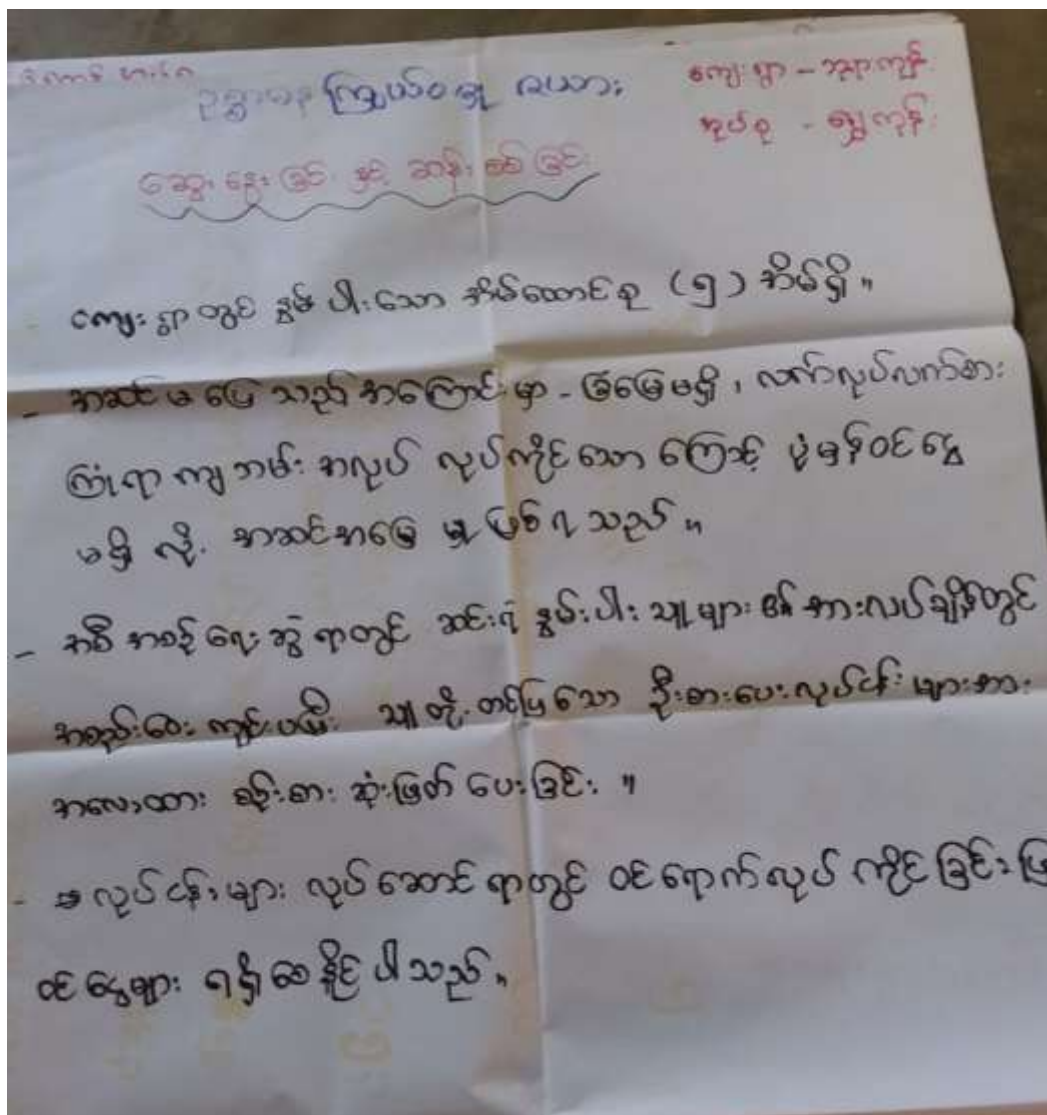 ဥစ္စာဓန ကြွယ်ဝမှု ဇယား
ကျေးရွာ - ညာကျွန်း
အုပ်စု - ရွှေကုန်း
ဆွေးနွေးခြင်း နှင့် ဆန်းစစ်ခြင်း
ကျေးရွာတွင် နွမ်းပါးသော အိမ်ထောင်စု (၅) အိမ်ရှိ။
- အဆင်မပြေသည့်အကြောင်းမှာ - ခြံမြေမရှိ၊ လက်လုပ်လက်စား
ကြုံရာကျဘမ်း အလုပ် လုပ်ကိုင်သောကြောင့် ပုံမှန်ဝင်ငွေ
မရှိလို့ အဆင်အမြေ မှု ဖြစ်ရသည်။
- အစီအစဉ်ရေးဆွဲရာတွင် ဆင်းရဲနွမ်းပါးသူများ၏ အားလပ်ချိန်တွင်
အစည်းဝေးကျင်းပပြီး သူတို့ တင်ပြသော ဦးစားပေးလုပ်ငန်းများအား
အလေးထား စဉ်းစား ဆုံးဖြတ်ပေးခြင်း။
- လုပ်ငန်းများ လုပ်ဆောင်ရာတွင် ဝင်ရောက်လုပ်ကိုင်ခြင်းဖြ
ဝင်ငွေများ ရရှိစေနိုင်ပါသည်။